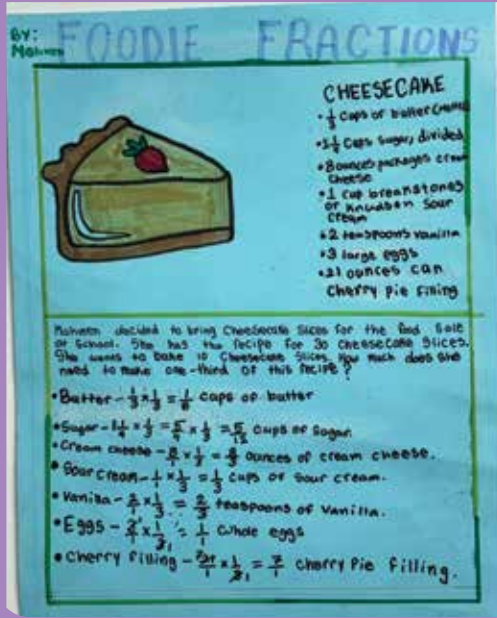 BY:
Mahveen
FOODIE FRACTIONS
CHEESECAKE
• 1/3 cups of butter (melted)
• 1 1/4 cups sugar, divided
• 8 ounces packages cream
cheese
• 1 cup breakstones
or knudsen sour
cream
• 2 teaspoons vanilla
• 3 large eggs
• 21 ounces can
cherry pie filling
Mahveen decided to bring Cheesecake slices for the food sale
at School. She has the recipe for 30 cheesecake slices.
She wants to bake 10 Cheesecake Slices. How much does she
need to make one-third of this recipe?
• Butter - 1/3 x 1/3 = cups of butter
• Sugar - 1 1/4 x 1/3 = 5/4 x 1/3 = 5/12 cups of Sugar.
• Cream cheese - 8/1 x 1/3 = 8/3 ounces of cream cheese.
• Sour cream - 1/1 x 1/3 = 1/3 cups of sour cream.
• Vanilla - 2/1 x 1/3 = 2/3 teaspoons of Vanilla.
• Eggs - 3/1 x 1/3 = 1/1 whole eggs
• Cherry filling - 21/1 x 1/3 = 7/1 cherry pie filling.